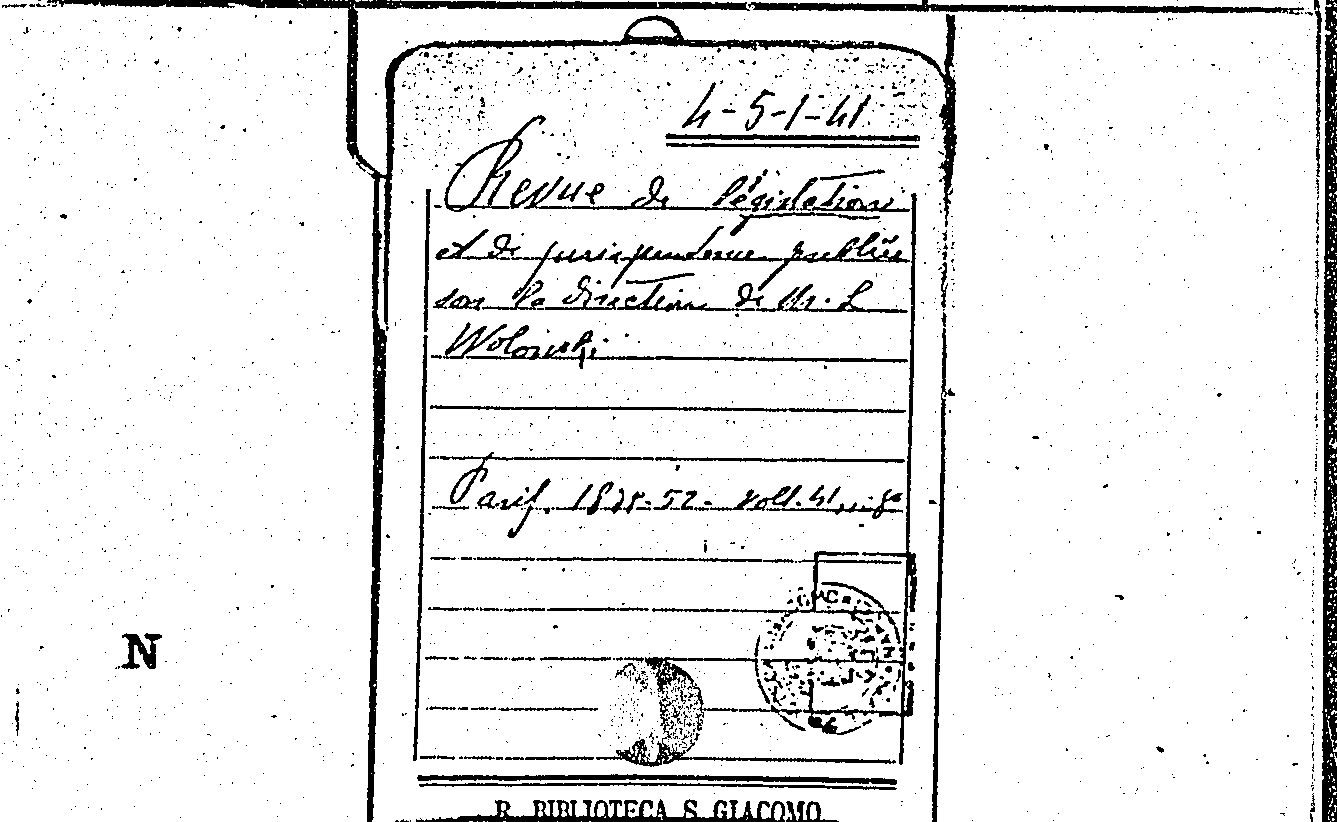 4-5-1-41
Revue de législation
et de jurisprudence publiée
sous la direction de M. L
Wolowski
Paris. 52 - voll. 41 in-8°
N
R. BIBLIOTECA S. GIACOMO